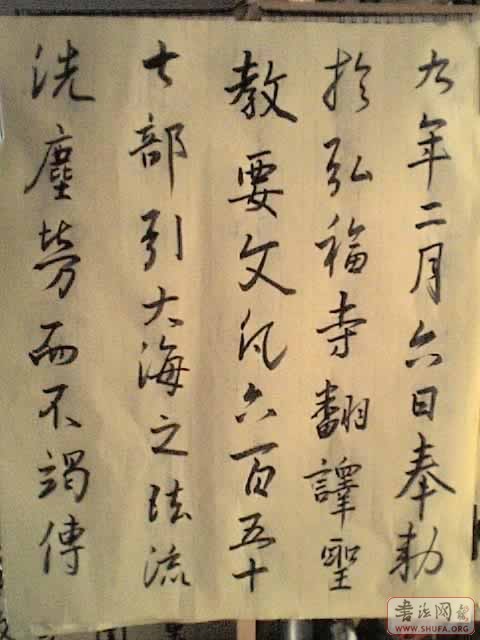 九年二月六日奉勅
於弘福寺翻譯聖
教要文凡六百五十
七部引大海之法流
洗塵勞而不竭傳
书法网
WWW.SHUFA.ORG